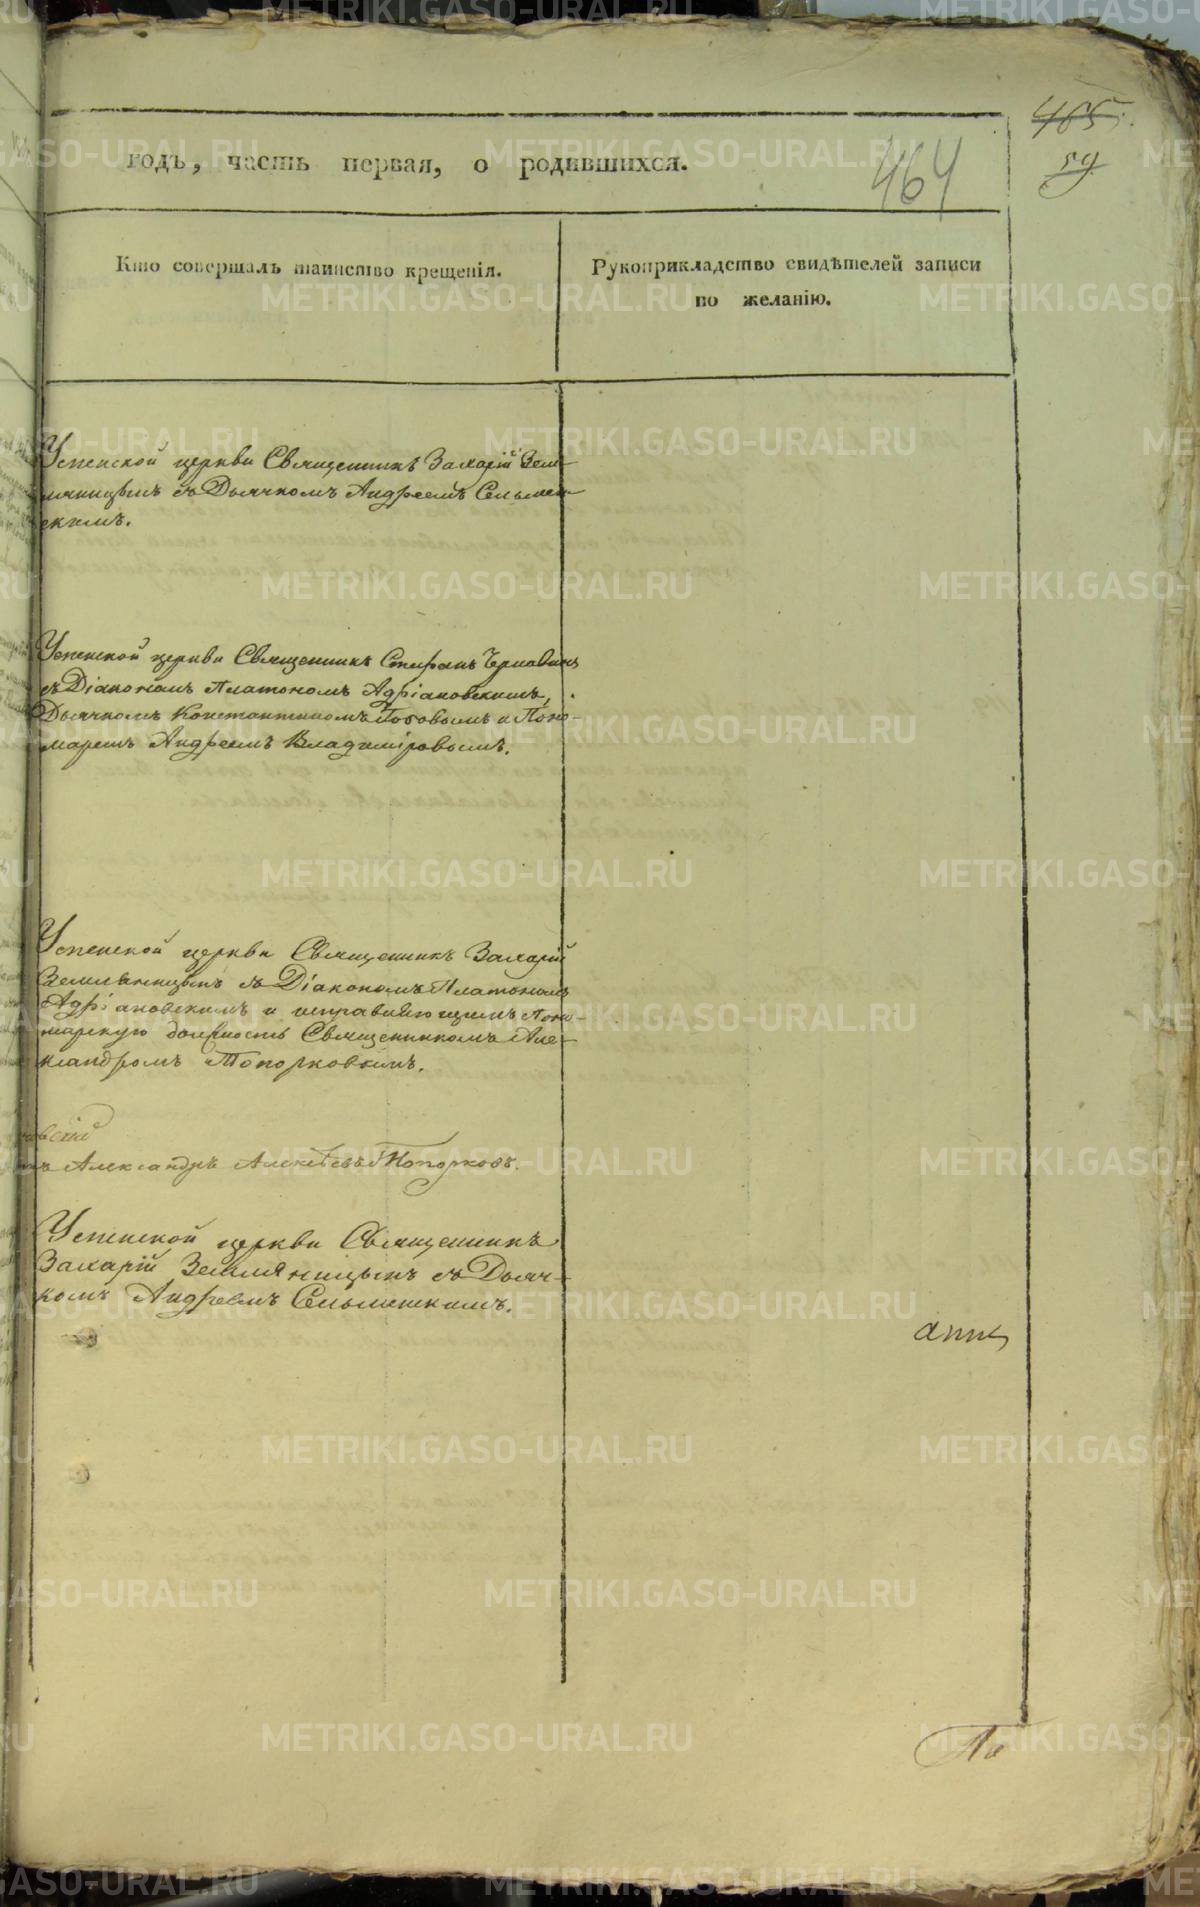 465.
59
464
годъ, часть первая, о родившихся.
Кто совершалъ таинство крещенія.
Рукоприкладство свидѣтелей записи
по желанію.
Успенской церкви Священникъ Захарій Зем-
ляницынъ съ Дьячкомъ Андреемъ Сельмен-
скимъ.
Успенской церкви Священникъ Стефанъ Чернавинъ
съ Діакономъ Платономъ Адріановскимъ,
Дьячкомъ Константиномъ и Поно-
маремъ Андреемъ Владиміровымъ.
Успенской церкви Священникъ Захарій
Земляницынъ съ Діакономъ Платономъ
Адріановскимъ и исправляющимъ Поно-
марскую должность Священникомъ Але-
ксандромъ Топорковымъ.
вскій
ъ Александръ Алексѣевъ Топорковъ.
Успенской церкви Священникъ
Захарій Земляницынъ съ Дьяч-
комъ Андреемъ Сельменскимъ.
По
METRIKI.GASO-URAL.RU